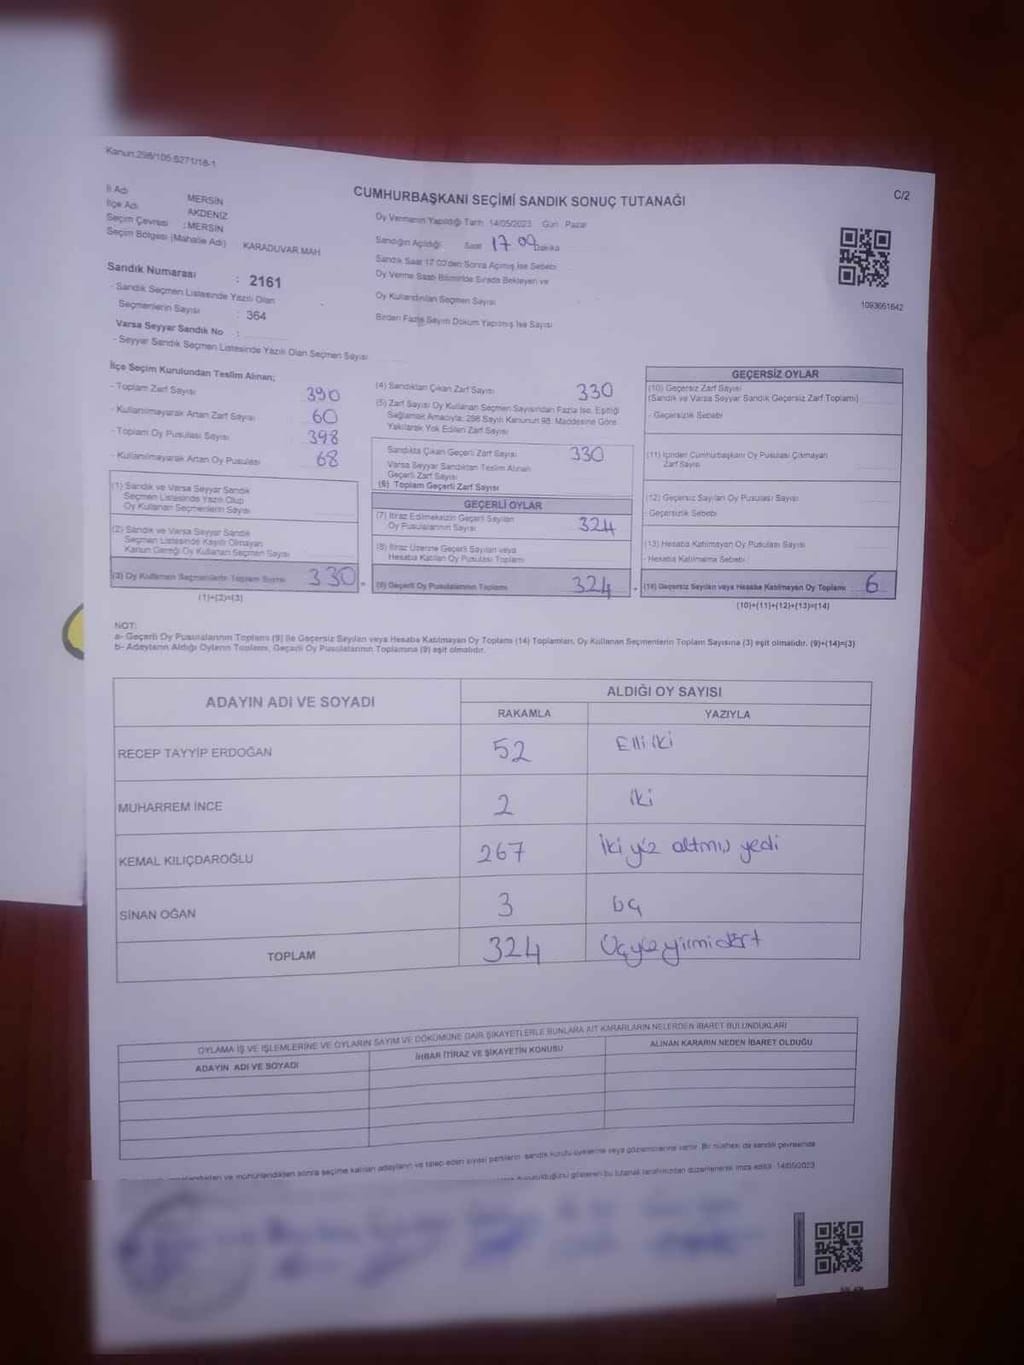 Kanun:298/105.5271/18-1
C/2
CUMHURBAŞKANI SEÇİMİ SANDIK SONUÇ TUTANAĞI
İl Adı MERSİN
İlçe Adı AKDENİZ
Seçim Çevresi :MERSİN
Seçim Bölgesi (Mahalle Adı) KARADUVAR MAH
Oy Vermenin Yapıldığı Tarih 14/05/2023 Gün Pazar
Sandığın Açıldığı Saat 17 09 Dakika
Sandık Saat 17:00'den Sonra Açılmış İse Sebebi
Oy Verme Saati Bitiminde Sırada Bekleyen ve
Oy Kullandırılan Seçmen Sayısı
Birden Fazla Sayım Döküm Yapılmış İse Sayısı
1093661642
Sandık Numarası : 2161
- Sandık Seçmen Listesinde Yazılı Olan
Seçmenlerin Sayısı : 364
Varsa Seyyar Sandık No :
- Seyyar Sandık Seçmen Listesinde Yazılı Olan Seçmen Sayısı
İlçe Seçim Kurulundan Teslim Alınan;
- Toplam Zarf Sayısı 390
- Kullanılmayarak Artan Zarf Sayısı 60
- Toplam Oy Pusulası Sayısı 398
- Kullanılmayarak Artan Oy Pusulası 68
(1) Sandık ve Varsa Seyyar Sandık
Seçmen Listesinde Yazılı Olup
Oy Kullanan Seçmenlerin Sayısı
(2) Sandık ve Varsa Seyyar Sandık
Seçmen Listesinde Kayıtlı Olmayan
Kanun Gereği Oy Kullanan Seçmen Sayısı
(3) Oy Kullanan Seçmenlerin Toplam Sayısı 330
(1)+(2)=(3)
(4) Sandıktan Çıkan Zarf Sayısı 330
(5) Zarf Sayısı Oy Kullanan Seçmen Sayısından Fazla İse, Eşitliği
Sağlamak Amacıyla; 298 Sayılı Kanunun 98. Maddesine Göre
Yakılarak Yok Edilen Zarf Sayısı
Sandıkta Çıkan Geçerli Zarf Sayısı 330
Varsa Seyyar Sandıktan Teslim Alınan
Geçerli Zarf Sayısı
(6) Toplam Geçerli Zarf Sayısı
GEÇERLİ OYLAR
(7) İtiraz Edilmeksizin Geçerli Sayılan
Oy Pusulalarının Sayısı 324
(8) İtiraz Üzerine Geçerli Sayılan veya
Hesaba Katılan Oy Pusulası Toplamı
(9) Geçerli Oy Pusulalarının Toplamı 324
GEÇERSİZ OYLAR
(10) Geçersiz Zarf Sayısı
(Sandık ve Varsa Seyyar Sandık Geçersiz Zarf Toplamı)
- Geçersizlik Sebebi
(11) İçinden Cumhurbaşkanı Oy Pusulası Çıkmayan
Zarf Sayısı
(12) Geçersiz Sayılan Oy Pusulası Sayısı
- Geçersizlik Sebebi
(13) Hesaba Katılmayan Oy Pusulası Sayısı
- Hesaba Katılmama Sebebi
(14) Geçersiz Sayılan veya Hesaba Katılmayan Oy Toplamı 6
(10)+(11)+(12)+(13)=(14)
NOT:
a- Geçerli Oy Pusulalarının Toplamı (9) ile Geçersiz Sayılan veya Hesaba Katılmayan Oy Toplamı (14) Toplamları, Oy Kullanan Seçmenlerin Toplam Sayısına (3) eşit olmalıdır. (9)+(14)=(3)
b- Adayların Aldığı Oyların Toplamı, Geçerli Oy Pusulalarının Toplamına (9) eşit olmalıdır.
ADAYIN ADI VE SOYADI
ALDIĞI OY SAYISI
RAKAMLA YAZIYLA
RECEP TAYYİP ERDOĞAN 52 Elli iki
MUHARREM İNCE 2 iki
KEMAL KILIÇDAROĞLU 267 İki yüz altmış yedi
SİNAN OĞAN 3
TOPLAM 324 Üçyüz yirmi dört
OYLAMA İŞ VE İŞLEMLERİNE VE OYLARIN SAYIM VE DÖKÜMÜNE DAİR ŞİKAYETLERLE BUNLARA AİT KARARLARIN NELERDEN İBARET BULUNDUKLARI
ADAYIN ADI VE SOYADI İHBAR İTİRAZ VE ŞİKAYETİN KONUSU ALINAN KARARIN NEDEN İBARET OLDUĞU
sonra seçime katılan adayların ve talep eden siyasi partilerin sandık kurulu üyelerine veya gözlemcilerine verilir. Bir nüshası da sandık çevresinde
gösteren bu tutanak tarafımızdan düzenlenerek imza edildi. 14/05/2023